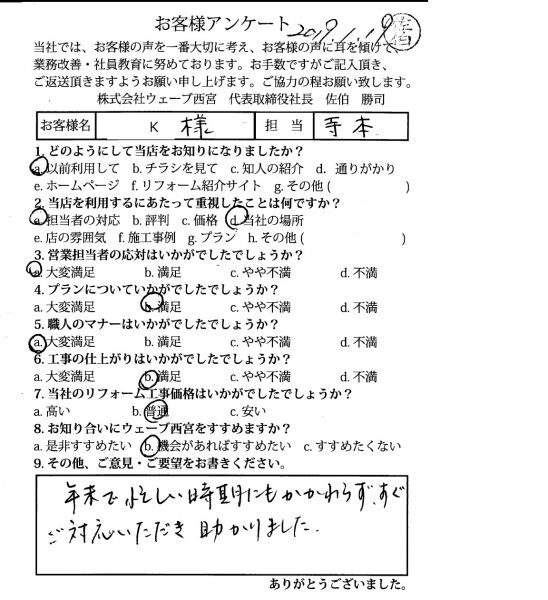 お客様アンケート 2019.1.19
当社では、お客様の声を一番大切に考え、お客様の声に耳を傾けて、
業務改善・社員教育に努めております。お手数ですがご記入頂き、
ご返送頂きますようお願い申し上げます。ご協力の程お願い致します。
株式会社ウェーブ西宮 代表取締役社長 佐伯 勝司
お客様名 K 様 担当 寺本
1. どのようにして当店をお知りになりましたか？
a. 以前利用して b. チラシを見て c. 知人の紹介 d. 通りがかり
e. ホームページ f. リフォーム紹介サイト g. その他 ( )
2. 当店を利用するにあたって重視したことは何ですか？
a. 担当者の対応 b. 評判 c. 価格 d. 当社の場所
e. 店の雰囲気 f. 施工事例 g. プラン h. その他 ( )
3. 営業担当者の応対はいかがでしたでしょうか？
a. 大変満足 b. 満足 c. やや不満 d. 不満
4. プランについていかがでしたでしょうか？
a. 大変満足 b. 満足 c. やや不満 d. 不満
5. 職人のマナーはいかがでしたでしょうか？
a. 大変満足 b. 満足 c. やや不満 d. 不満
6. 工事の仕上がりはいかがでしたでしょうか？
a. 大変満足 b. 満足 c. やや不満 d. 不満
7. 当社のリフォーム工事価格はいかがでしたでしょうか？
a. 高い b. 普通 c. 安い
8. お知り合いにウェーブ西宮をすすめますか？
a. 是非すすめたい b. 機会があればすすめたい c. すすめたくない
9. その他、ご意見・ご要望をお書きください。
年末で忙しい時期にもかかわらず、すぐ
ご対応いただき助かりました.
ありがとうございました。